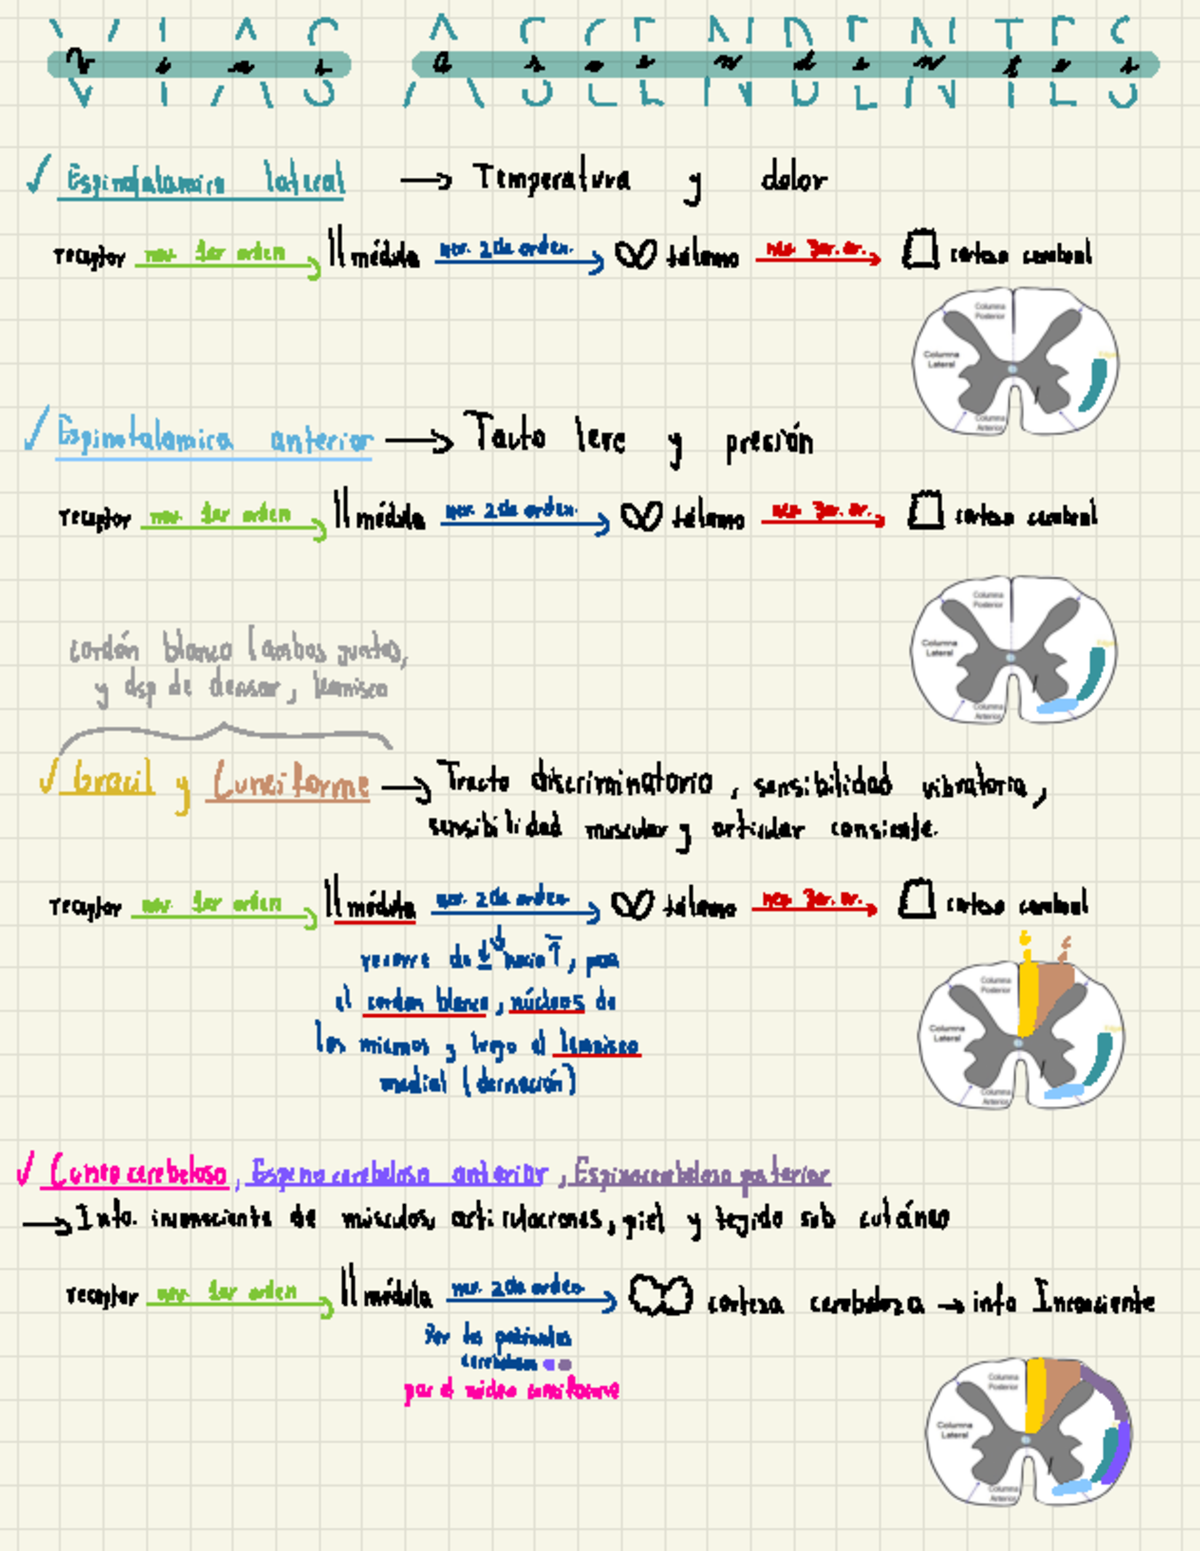 Vías Ascendentes
✓ Espinotalamica lateral → Temperatura y dolor
receptor neu. 1er orden médula neu. 2do orden tálamo neu. 3er. or. corteza cerebral
Columna Posterior
Columna Lateral
Columna Anterior
✓ Espinotalamica anterior → Tacto leve y presión
receptor neu. 1er orden médula neu. 2do orden tálamo neu. 3er. or. corteza cerebral
Columna Posterior
Columna Lateral
Columna Anterior
cordón blanco (ambos juntos,
y dsp de decusar, lemnisco
✓ Gracil y Cuneiforme → Tracto discriminatorio, sensibilidad vibratoria,
sensibilidad muscular y articular consiente.
receptor neu. 1er orden médula neu. 2do orden tálamo neu. 3er. or. corteza cerebral
recorre de ↓ hacia ↑, por
el cordon blanco, núcleos de
los mismos y luego el lemnisco
medial
Columna Posterior
Columna Lateral
Columna Anterior
✓ Cuneocerebeloso, Espinocerebeloso anterior, Espinocerebeloso posterior
→ Info. inconsciente de músculos, articulaciones, piel y tejido sub cutáneo
receptor neu. 1er orden médula neu. 2do orden corteza cerebeloza → info Inconsciente
Por los pedúnculos
por el núcleo cuneiforme
Columna Posterior
Columna Lateral
Columna Anterior